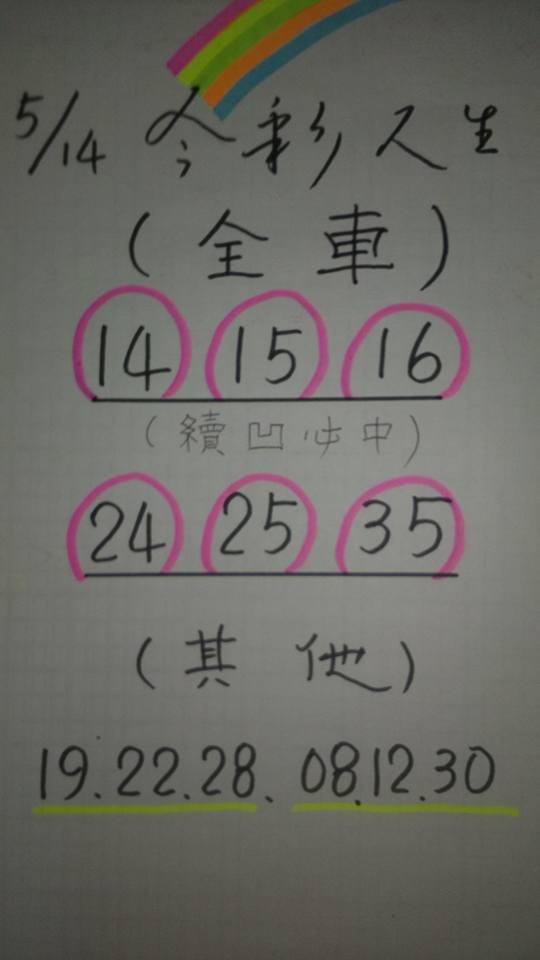 5/14 今彩人生
(全車)
14 15 16
(續凹必中)
24 25 35
(其他)
19.22.28、08.12.30